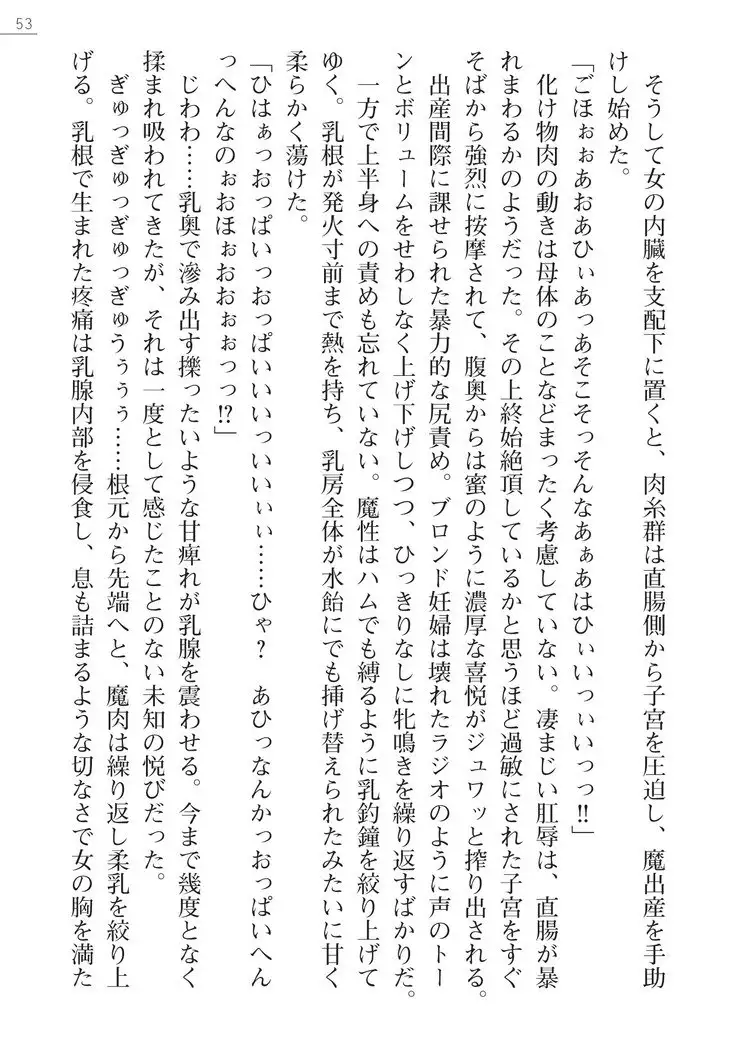 53
そうして女の内臓を支配下に置くと、肉糸群は直腸側から子宮を圧迫し、魔出産を手助
けし始めた。
「ごほぉぉあおあひぃあっあそこそっそんなあぁあはひぃいっぃいっっ!!」
化け物肉の動きは母体のことなどまったく考慮していない。凄まじい肛辱は、直腸が暴
れまわるかのようだった。その上終始絶頂しているかと思うほど過敏にされた子宮をすぐ
そばから強烈に按摩されて、腹奥からは蜜のように濃厚な喜悦がジュワッと搾り出される。
出産間際に課せられた暴力的な尻責め。ブロンド妊婦は壊れたラジオのように声のトー
ンとボリュームをせわしなく上げ下げしつつ、ひっきりなしに牝鳴きを繰り返すばかりだ。
一方で上半身への責めも忘れていない。魔性はハムでも縛るように乳釣鐘を絞り上げて
ゆく。乳根が発火寸前まで熱を持ち、乳房全体が水飴にでも挿げ替えられたみたいに甘く
柔らかく蕩けた。
「ひはぁっおっぱいっおっぱいいいっいいぃぃ……ひゃ？　あひっなんかっおっぱいへん
っへんなのぉおほぉおおぉぉっっ!?」
じわわ……乳奥で滲み出す擽ったいような甘痺れが乳腺を震わせる。今まで幾度となく
揉まれ吸われてきたが、それは一度として感じたことのない未知の悦びだった。
ぎゅっぎゅっぎゅっぎゅうぅぅぅ……根元から先端へと、魔肉は繰り返し柔乳を絞り上
げる。乳根で生まれた疼痛は乳腺内部を侵食し、息も詰まるような切なさで女の胸を満た